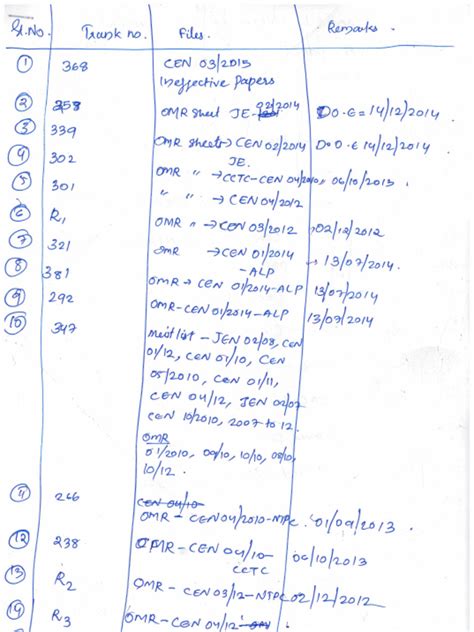 Sr.No. Trunk no. Files. Remarks.
① 368 CEN 03/2015
Ineffective Papers
② 258 OMR sheet JE- 02/2014 D.O.E=14/12/2014
③ 339 OMR sheets→CEN 02/2014 D.O.E 14/12/2014
JE.
④ 302 OMR " →CCTC-CEN 04/2010, 06/10/2013
⑤ 301 " " → CEN 04/2012
⑥ R1 OMR " → CEN 03/2012 →02/12/2012
⑦ 321 OMR → CEN 01/2014 → 13/07/2014
-ALP
⑧ 381 OMR→ CEN 01/2014-ALP 13/07/2014
⑨ 292 OMR-CEN 01/2014-ALP 13/07/2014
⑩ 347 meritlist - JEN 02/08, CEN
01/12, CEN 01/10, CEN
05/2010, CEN 01/11,
CEN 04/12, JEN 02/07
CEN 10/2010, 2007 to 12.
OMR
01/2010, 09/10, 10/10, 08/10,
10/12.
⑪ 266 CEN 04/10-
OMR - CEN 04/2010-NTPC. 01/09/2013.
⑫ 238 OMR-CEN 04/10- 06/10/2013
CCTC
⑬ R2 OMR- CEN 03/12-NTPC 02/12/2012
⑭ R3 OMR-CEN 04/12